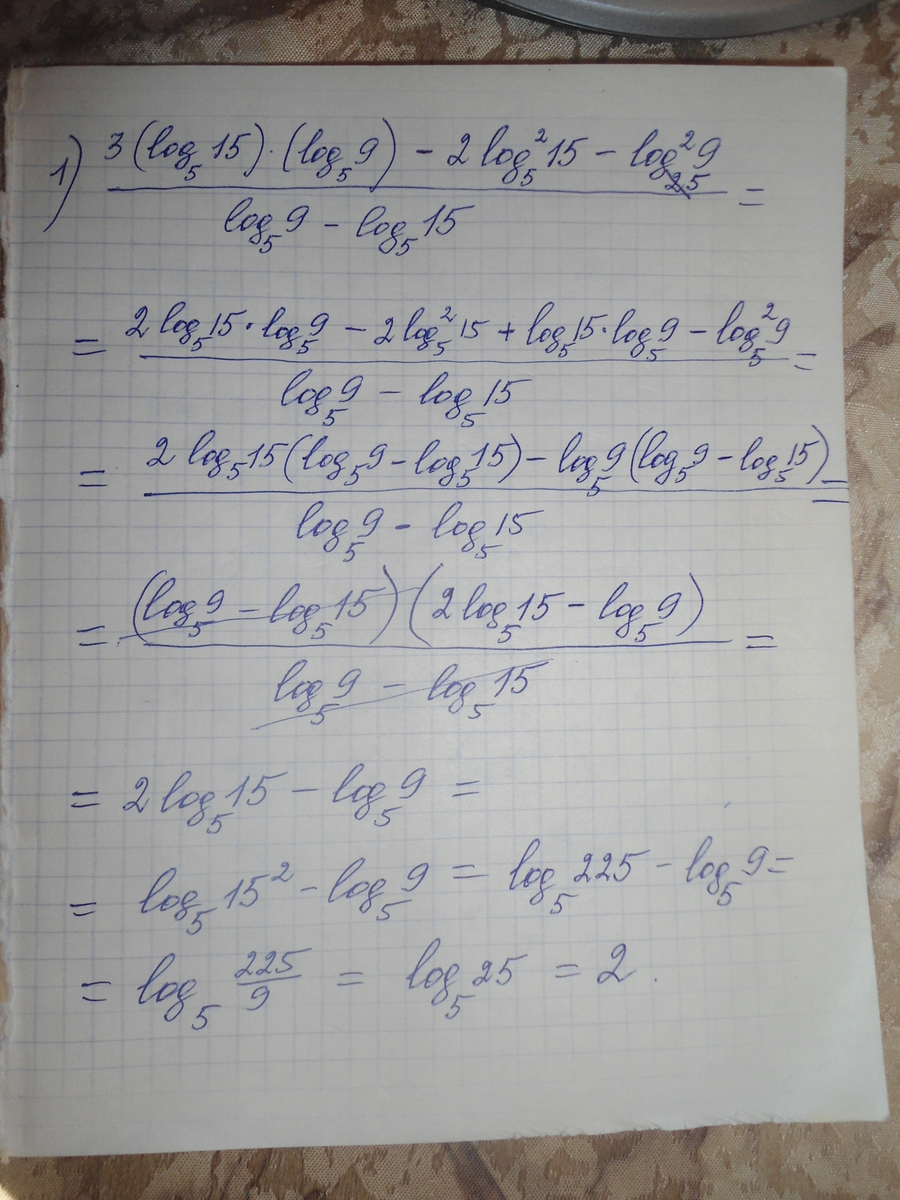 1) 3(log₅15)·(log₅9) − 2log₅²15 − log₂₅²9 =
log₅9 − log₅15
= 2log₅15·log₅9 − 2log₅²15 + log₅15·log₅9 − log₅²9 =
log₅9 − log₅15
= 2log₅15(log₅9 − log₅15) − log₅9(log₅9 − log₅15) =
log₅9 − log₅15
= (log₅9 − log₅15)(2log₅15 − log₅9) =
log₅9 − log₅15
= 2log₅15 − log₅9 =
= log₅15² − log₅9 = log₅225 − log₅9 =
= log₅ 225/9 = log₅25 = 2.